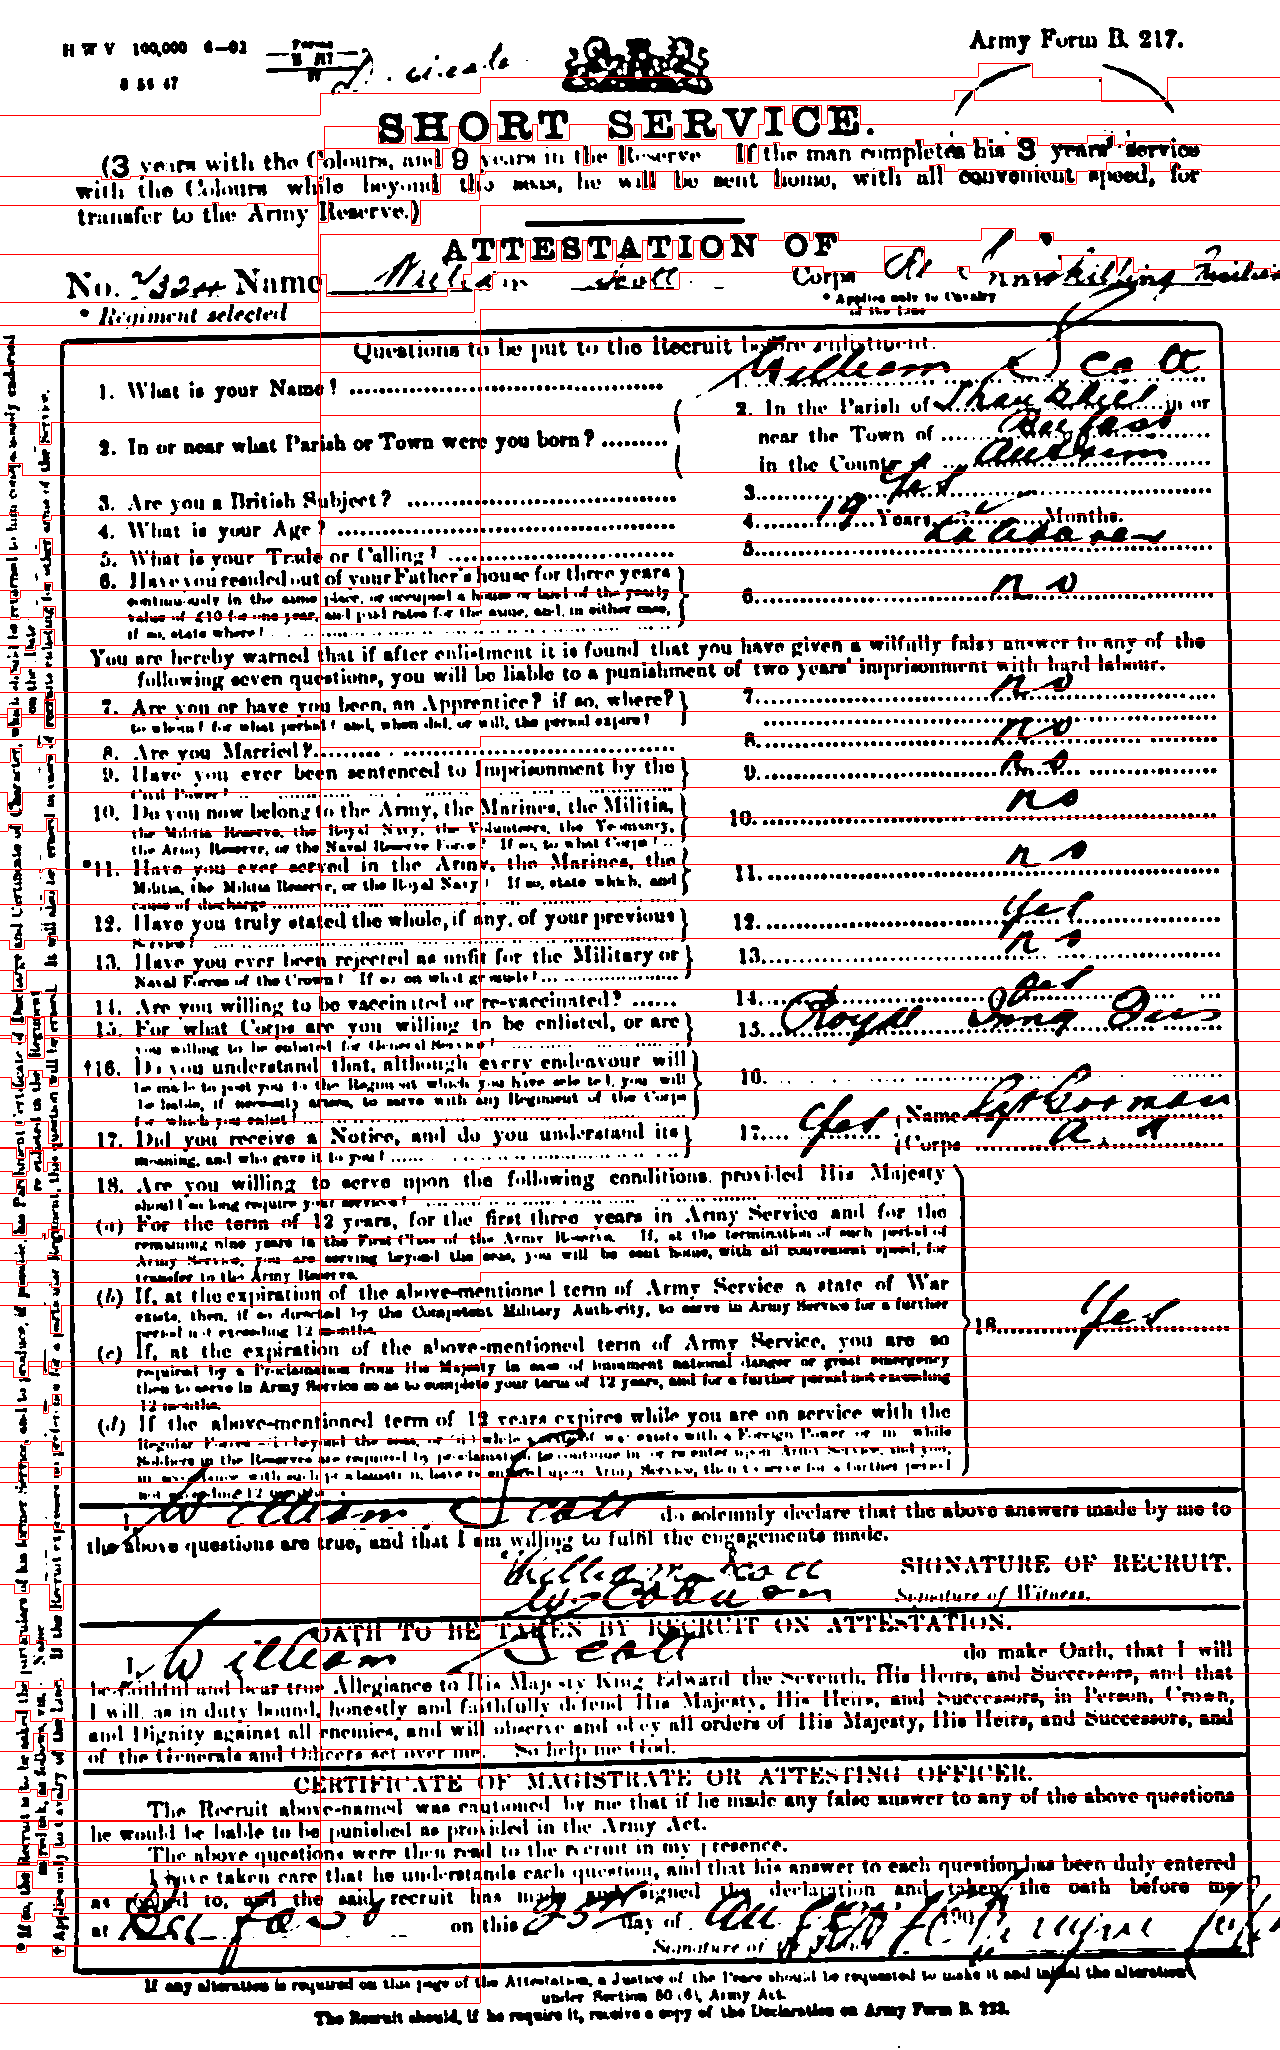 H W V 100,000 6—02
Army Form B. 217.
SHORT SERVICE.
(3 years with the Colours, and 9 years in the Reserve If the man completes his 3 years' service
with the Colours while beyond the seas, he will be sent home, with all convenient speed, for
transfer to the Army Reserve.)
ATTESTATION OF
No. Name William Scott Corps Rl Inniskilling Fusiliers
* Regiment selected
* Applies only to Cavalry
of the Line
Questions to be put to the Recruit before enlistment.
1. What is your Name? 1. William Scott
2. In or near what Parish or Town were you born? 2. In the Parish of Shankhill in or
near the Town of Belfast
in the County of Antrim
3. Are you a British Subject? 3. Yes
4. What is your Age? 4. 19 Years Months.
5. What is your Trade or Calling? 5. Labourer
6. Have you resided out of your Father's house for three years
continuously in the same place, or occupied a house or land of the yearly
value of £10 for one year, and paid rates for the same, and, in either case,
if so, state where? 6. no
You are hereby warned that if after enlistment it is found that you have given a wilfully false answer to any of the
following seven questions, you will be liable to a punishment of two years' imprisonment with hard labour.
7. Are you or have you been, an Apprentice? if so, where? 7. no
to whom? for what period? and, when did, or will, the period expire?
8. Are you Married? 8. no
9. Have you ever been sentenced to Imprisonment by the 9. no
Civil Power?
10. Do you now belong to the Army, the Marines, the Militia, 10. no
the Militia Reserve, the Royal Navy, the Volunteers, the Yeomanry,
the Army Reserve, or the Naval Reserve Force? If so, to what Corps?
*11. Have you ever served in the Army, the Marines, the 11. no
Militia, the Militia Reserve, or the Royal Navy? If so, state which, and
cause of discharge
12. Have you truly stated the whole, if any, of your previous 12. Yes
Service?
13. Have you ever been rejected as unfit for the Military or 13. no
Naval Forces of the Crown? If so on what grounds?
14. Are you willing to be vaccinated or re-vaccinated? 14. Yes
15. For what Corps are you willing to be enlisted, or are 15. Royal Innis Fus
you willing to be enlisted for General Service?
†16. Do you understand that, although every endeavour will 16.
be made to post you to the Regiment which you have selected, you will
be liable, if necessity arises, to serve with any Regiment of the Corps
for which you enlist?
17. Did you receive a Notice, and do you understand its 17. Yes Name Sgt Gorman
meaning, and who gave it to you? Corps
18. Are you willing to serve upon the following conditions provided His Majesty
should so long require your services?
(a) For the term of 12 years, for the first three years in Army Service and for the
remaining nine years in the First Class of the Army Reserve. If, at the termination of such period of
Army Service, you are serving beyond the seas, you will be sent home, with all convenient speed, for
transfer to the Army Reserve.
(b) If, at the expiration of the above-mentioned term of Army Service a state of War
exists, then, if so directed by the Competent Military Authority, to serve in Army Service for a further
period not exceeding 12 months. 18. Yes
(c) If, at the expiration of the above-mentioned term of Army Service, you are so
required by a Proclamation from His Majesty in case of imminent national danger or great emergency
then to serve in Army Service so as to complete your term of 12 years, and for a further period not exceeding
12 months.
(d) If the above-mentioned term of 12 years expires while you are on service with the
Regular Forces beyond the seas, or while a state of war exists with a Foreign Power or while
Soldiers in the Reserves are required by proclamation to continue in or re-enter upon Army Service, and you,
in accordance with such proclamation, have re-entered upon Army Service, then to serve for a further period
not exceeding 12 months.
I, William Scott do solemnly declare that the above answers made by me to
the above questions are true, and that I am willing to fulfil the engagements made.
William Scott SIGNATURE OF RECRUIT.
Signature of Witness.
OATH TO BE TAKEN BY RECRUIT ON ATTESTATION.
I, William Scott do make Oath, that I will
be faithful and bear true Allegiance to His Majesty King Edward the Seventh, His Heirs, and Successors, and that
I will, as in duty bound, honestly and faithfully defend His Majesty, His Heirs, and Successors, in Person, Crown,
and Dignity against all enemies, and will observe and obey all orders of His Majesty, His Heirs, and Successors, and
of the Generals and Officers set over me. So help me God.
CERTIFICATE OF MAGISTRATE OR ATTESTING OFFICER.
The Recruit above-named was cautioned by me that if he made any false answer to any of the above questions
he would be liable to be punished as provided in the Army Act.
The above questions were then read to the recruit in my presence.
I have taken care that he understands each question, and that his answer to each question has been duly entered
as replied to, and the said recruit has made and signed the declaration and taken the oath before me
at Belfast on this 25th day of 190
Signature of
If any alteration is required on this page of the Attestation, a Justice of the Peace should be requested to make it and initial the alteration
under Section 80 (6), Army Act.
The Recruit should, if he require it, receive a copy of the Declaration on Army Form B. 222.